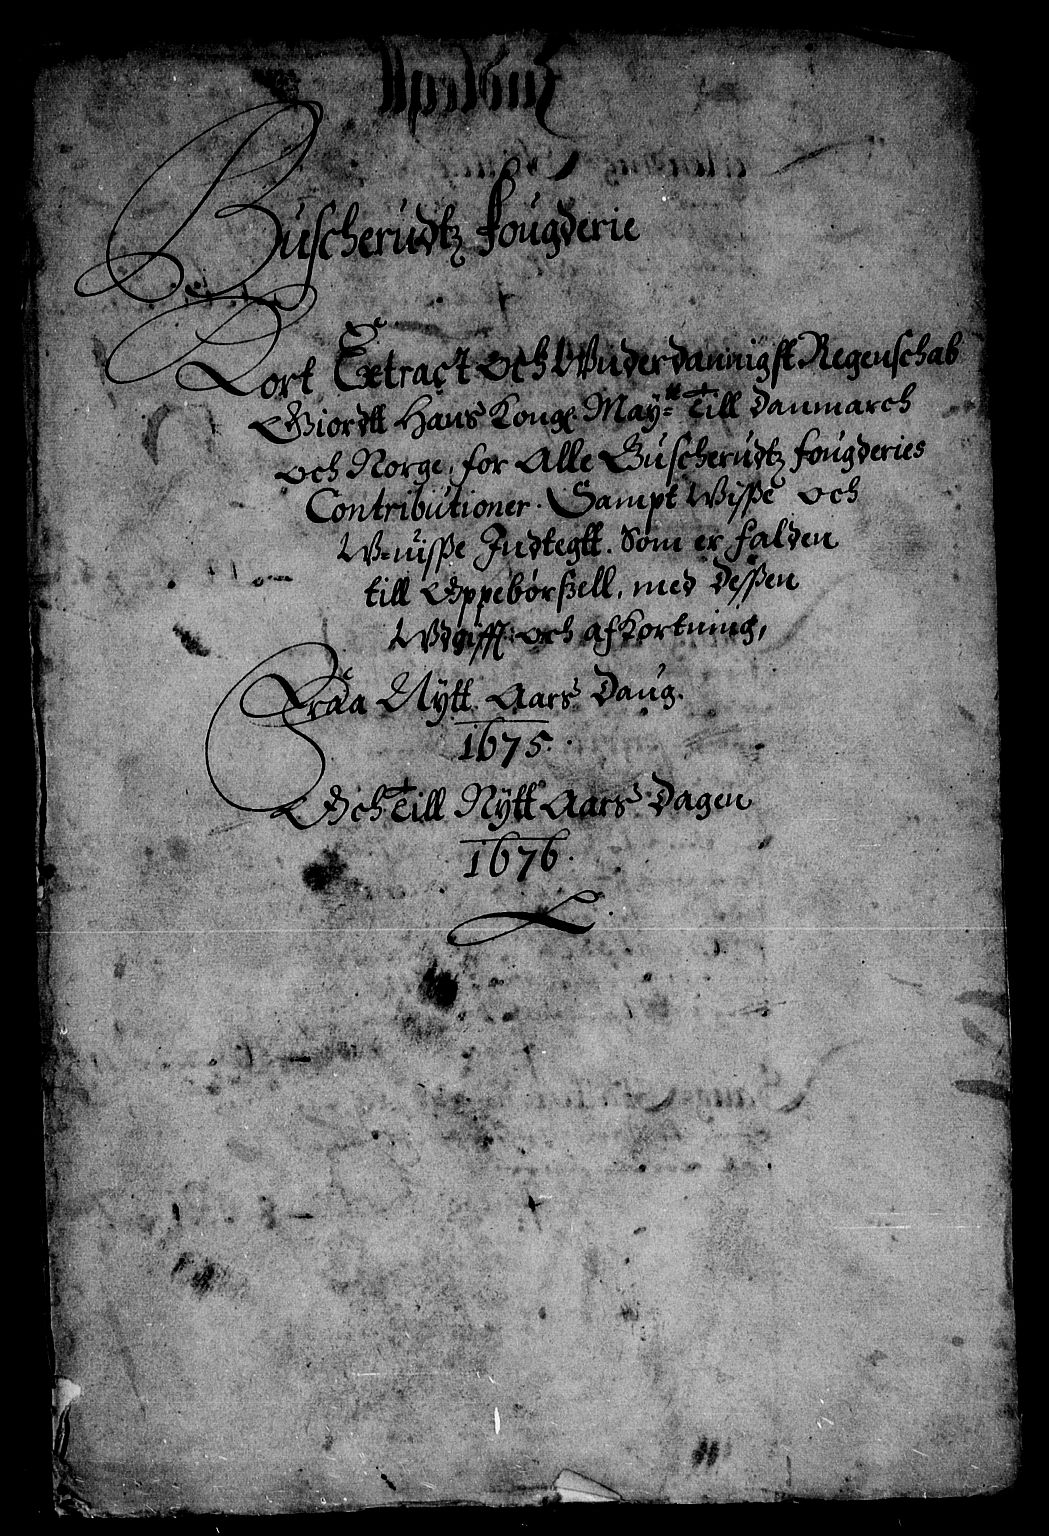 Buscherudtz fougderie
Kort Extract och Wnderdannigst Regenschab
Giordtt Hans Kongl May:tt Till Danmarch
och Norge, for Alle Buscherudtz fougderies
Contributioner. Sampt Wisse och
W=uisse Indtegtt. Som er falden
till Oppebørszell, med Dessen
Wdgifft och afkortning,
Fraa Nÿtt Aars Daug.
1675.
Och Till Nÿtt Aars Dagen
1676.